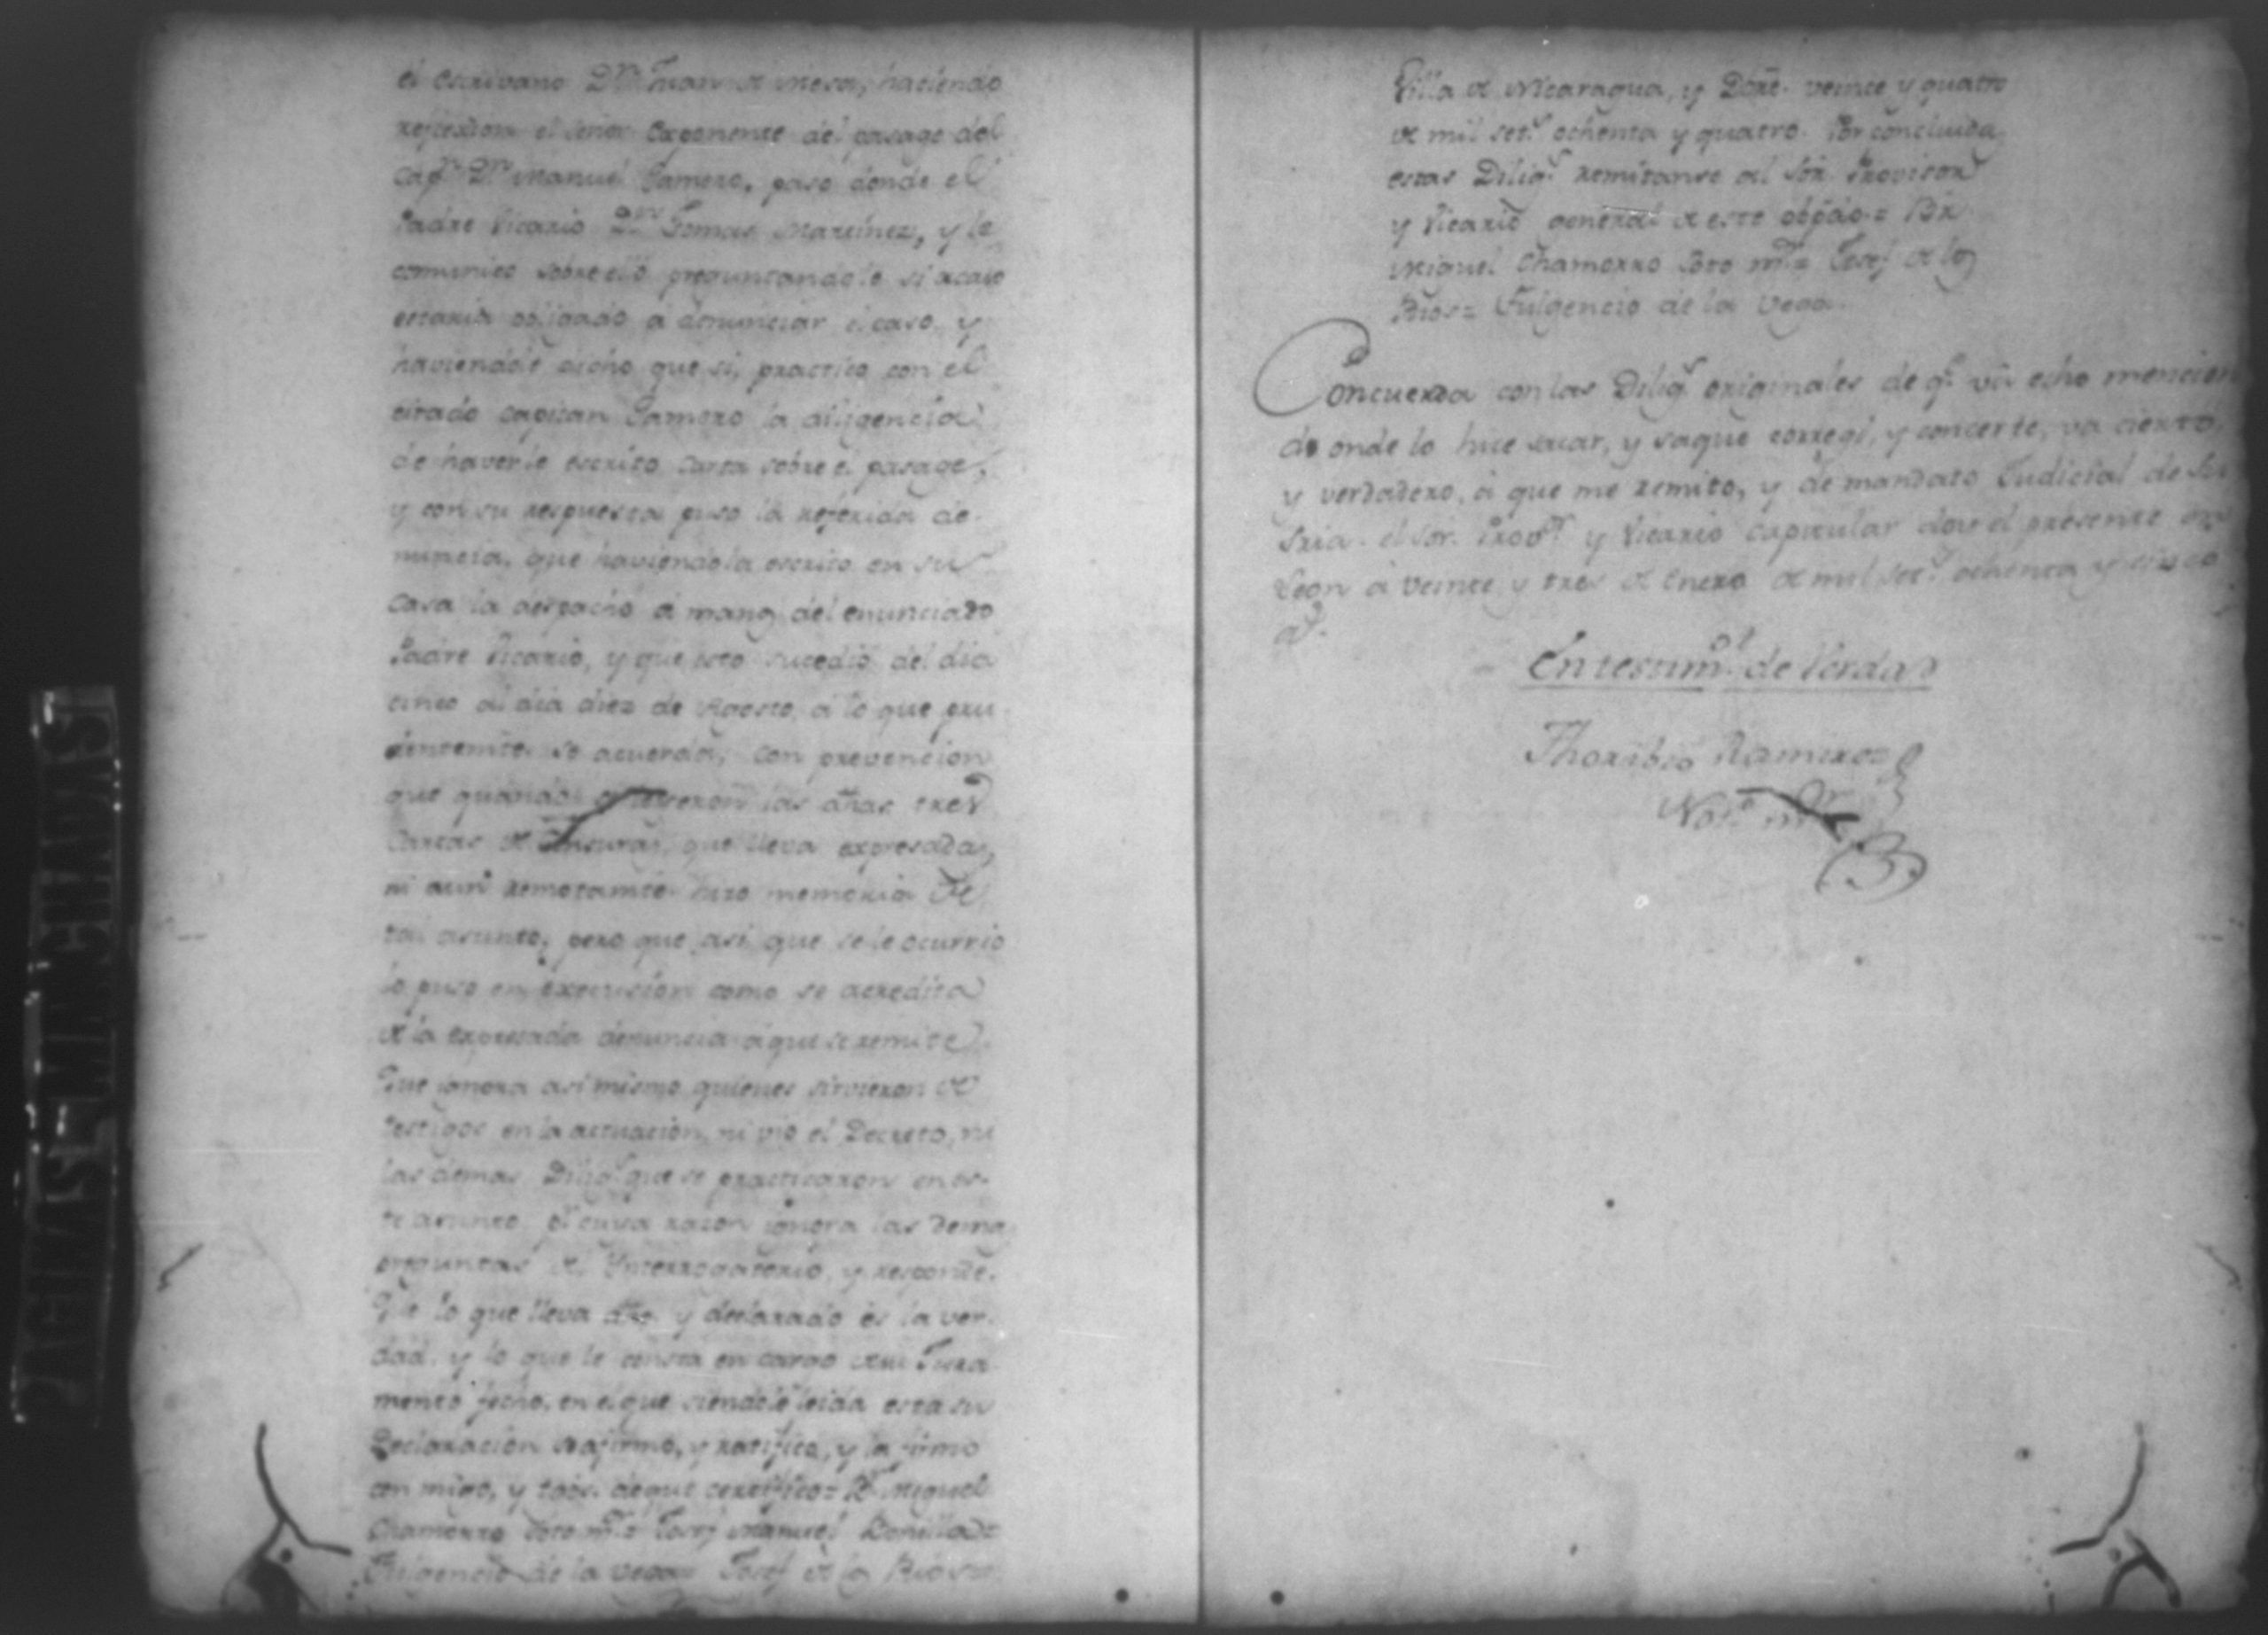 el escrivano Dn Juan de Mesa, haciendo
reflexion el señor Exponente del pasage del
Capn Dn Manuel Gamero, paso donde el
Padre Vicario Dn Tomas Martinez, y le
comunicó sobre ello preguntandole si acaso
estaria obligado á denunciar el caso, y
haviendole dicho que si, practico con el
citado Capitan Gamero la diligencia
de haverle escrito Carta sobre el pasage,
y con su respuesta puso la referida de-
nuncia, que haviendola escrito en su
Casa la despachó á mano del enunciado
Padre Vicario, y que esto sucedió del dia
cinco al dia diez de Agosto, á lo que pru
dentemte. se acuerda, con prevencion
que quando se leyeron las dhas. tres
Cartas de Censuras, que lleva expresadas,
ni aun remotamte. hizo memoria de
tal asunto, pero que asi que se le ocurrio
lo puso en execusion como se acredita
de la expresada denuncia á que se remite.
Que ignora asi mismo quienes sirvieron de
testigos en la actuacion, ni vio el Decreto, ni
las demas Diligs. que se practicaron en es-
te asunto, pr cuya razon ignora las demas
preguntas del Interrogatorio, y responde.
Que lo que lleva dho. y declarado es la ver-
dad, y lo que le consta en cargo de su Jura
mento fecho, en el que siendole leida esta su
Declaracion se afirmó, y ratificó, y la firmó
con migo, y tgos. de que certifico= Br. Miguel
Chamorro Soto mr.= Josef Manuel Bonilla=
Fulgencio de la Vega= Josef de los Rios=
Villa de Nicaragua, y Dore. veinte y quatro
de mil sets. ochenta y quatro. Por concluida
estas Diligs. remitanse al Sor. Provisor
y Vicario general de este obpdo.= Br.
Miguel Chamorro Soto mr.= Josef de los
Rios= Fulgencio de la Vega.
Concuerda con las Diligs. originales de qe. va echo mencion
de onde lo hice sacar, y saqué corregi, y concerte, va cierto,
y verdadero, á que me remito, y de mandato Judicial de Su
Sria. el Sor. Provr. y Vicario Capitular doy el presente en
Leon á veinte y tres de Enero de mil sets. ochenta y cinco
as.
En testimo. de Verdad
Thoribio Ramirez
Noto. mr.